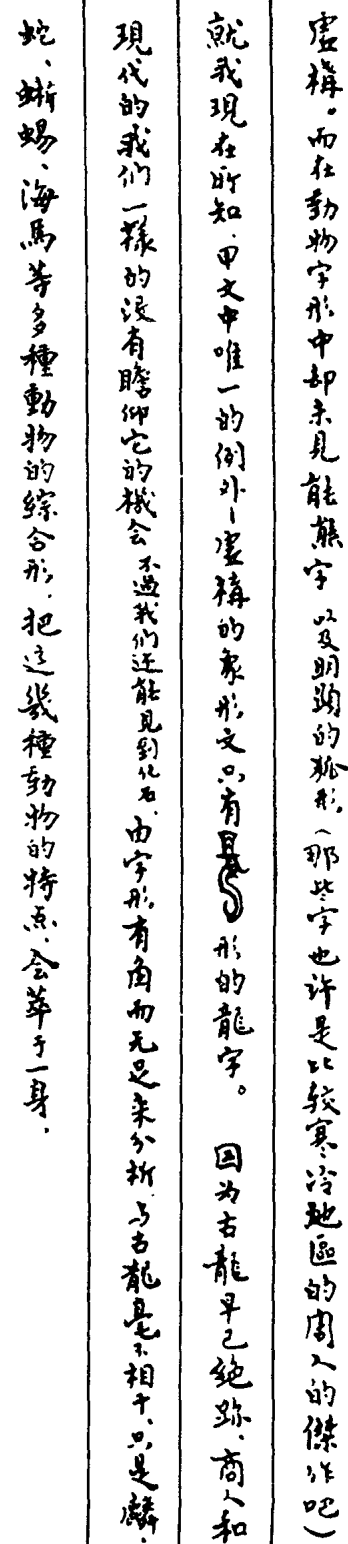 虛構。而在動物字形中却未見能熊字以及明顯的狐形。(那些字也許是比较寒冷地區的周人的傑作吧)
就我現在所知、甲文中唯一的例外-虛構的象形文只有形的龍字。因为古龍早已絕跡、商人和
現代的我们一樣的没有瞻仰它的機会 不過我们还能見到化石、由字形有角而无足来分析、与古龍毫不相干、只是麟、
蛇、蜥蜴、海馬等多種動物的綜合形、把這幾種動物的特点、会萃于一身、